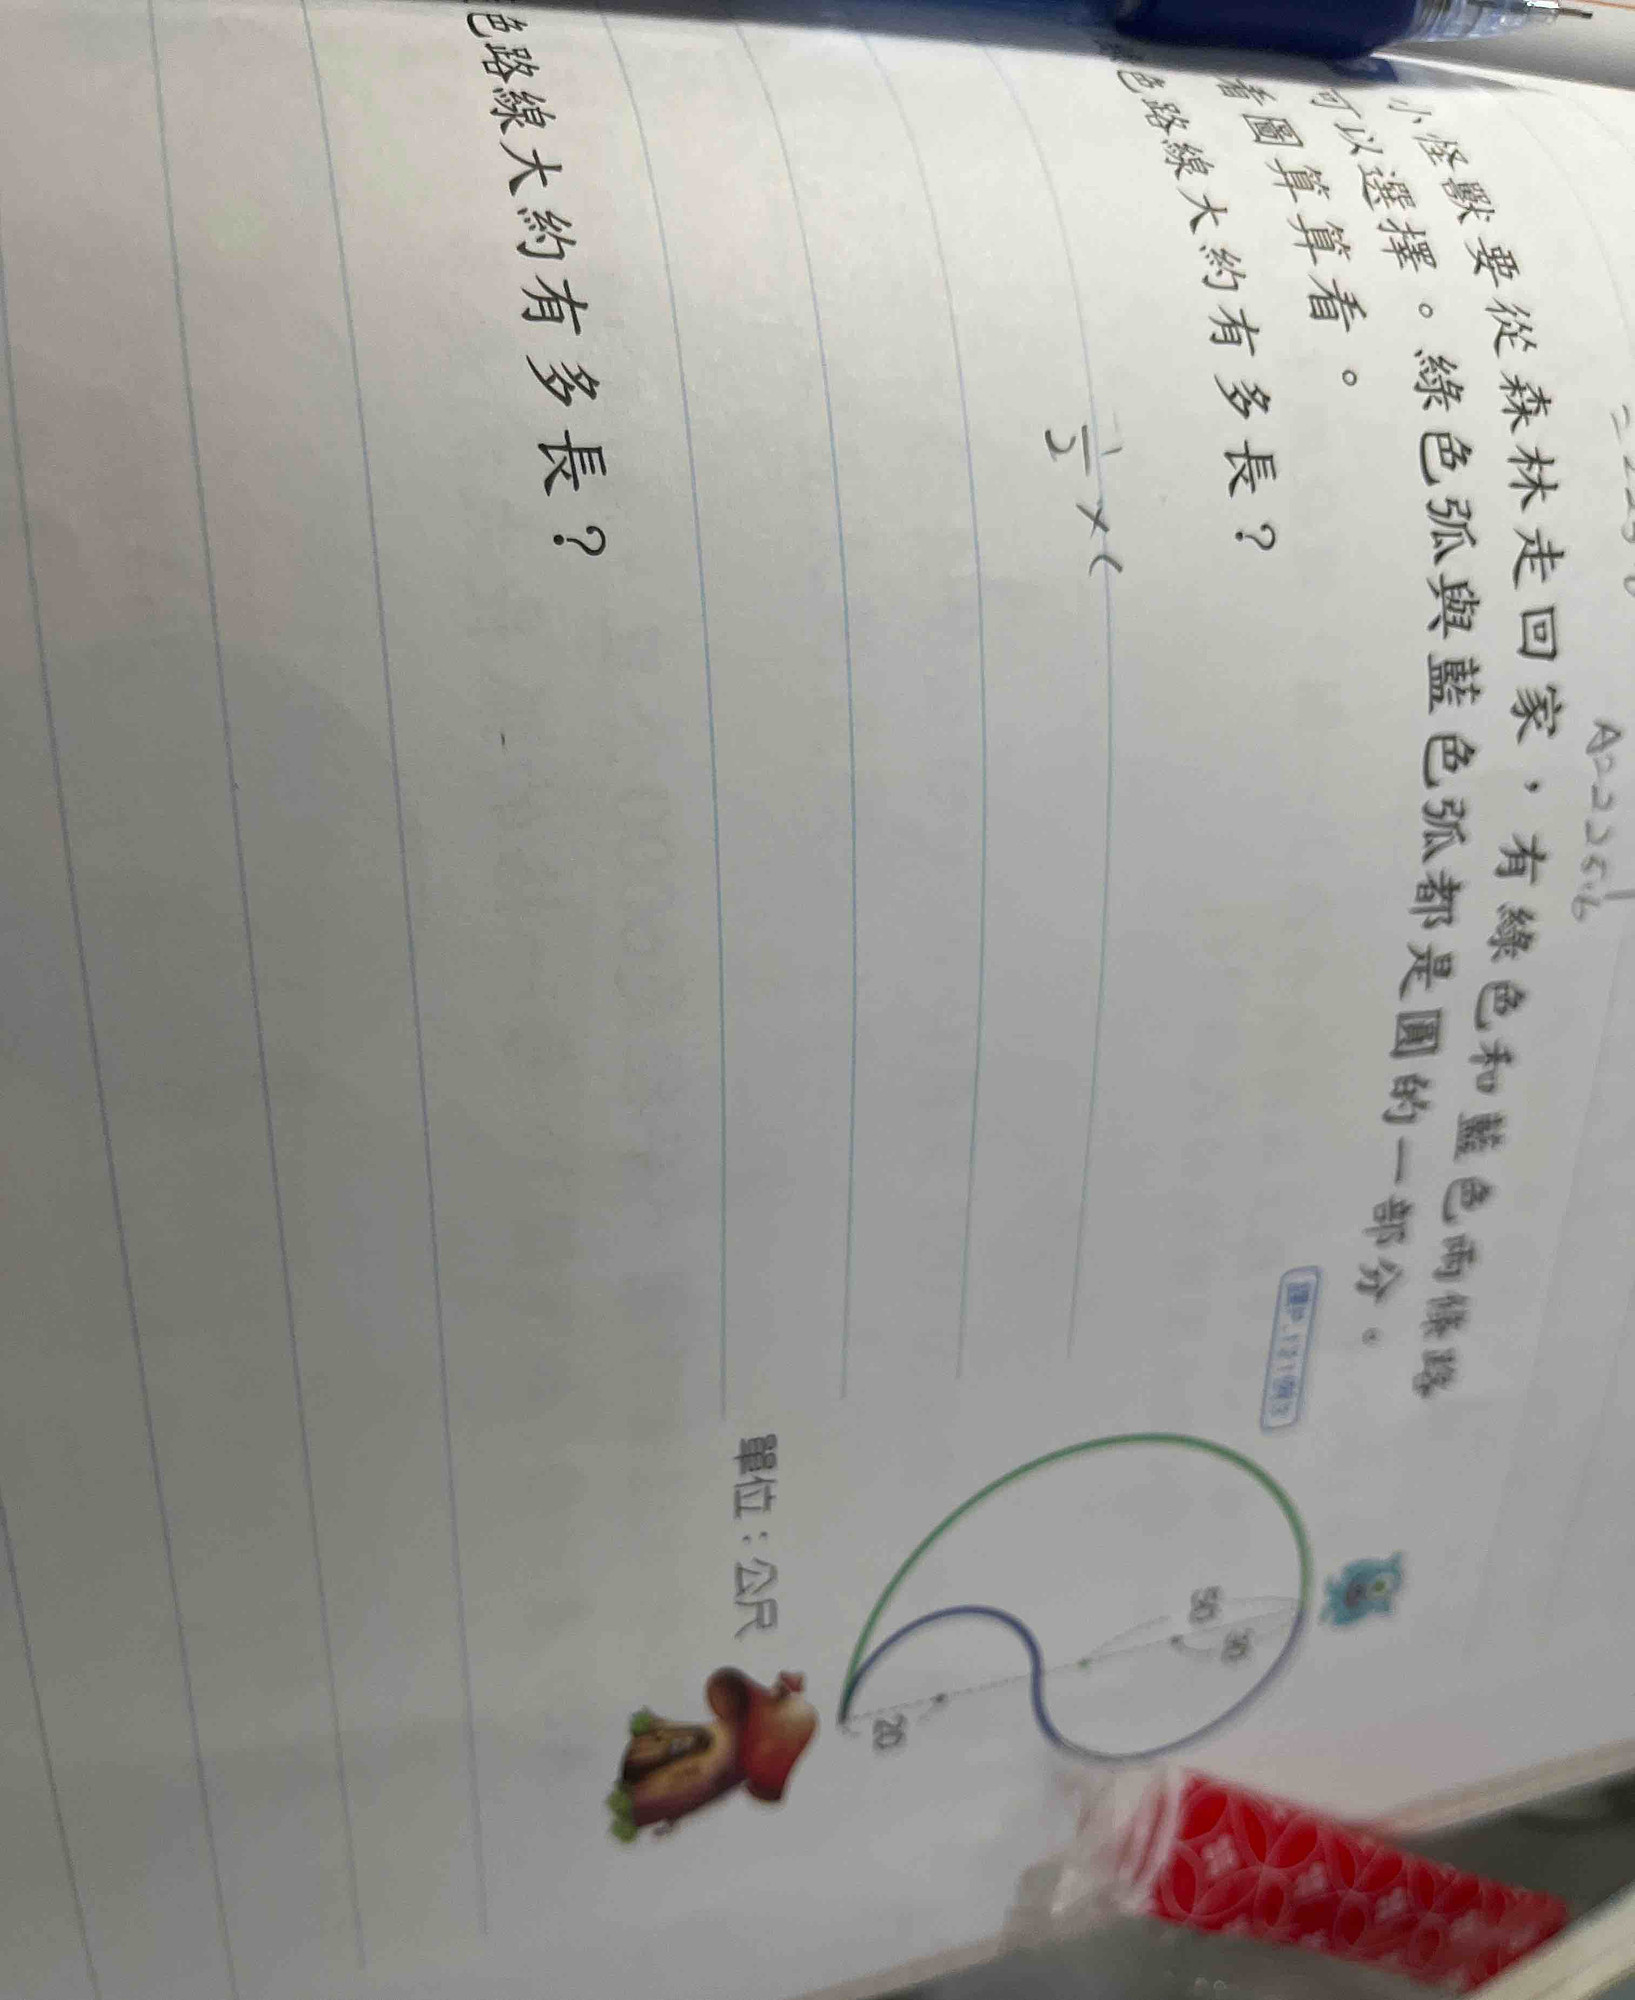 A=2256.6
小怪獸要從森林走回家,有綠色和藍色兩條路
可以選擇。綠色弧與藍色弧都是圓的一部分。
看圖算算看。
色路線大約有多長?
50
30
20
單位:公尺
色路線大約有多長?